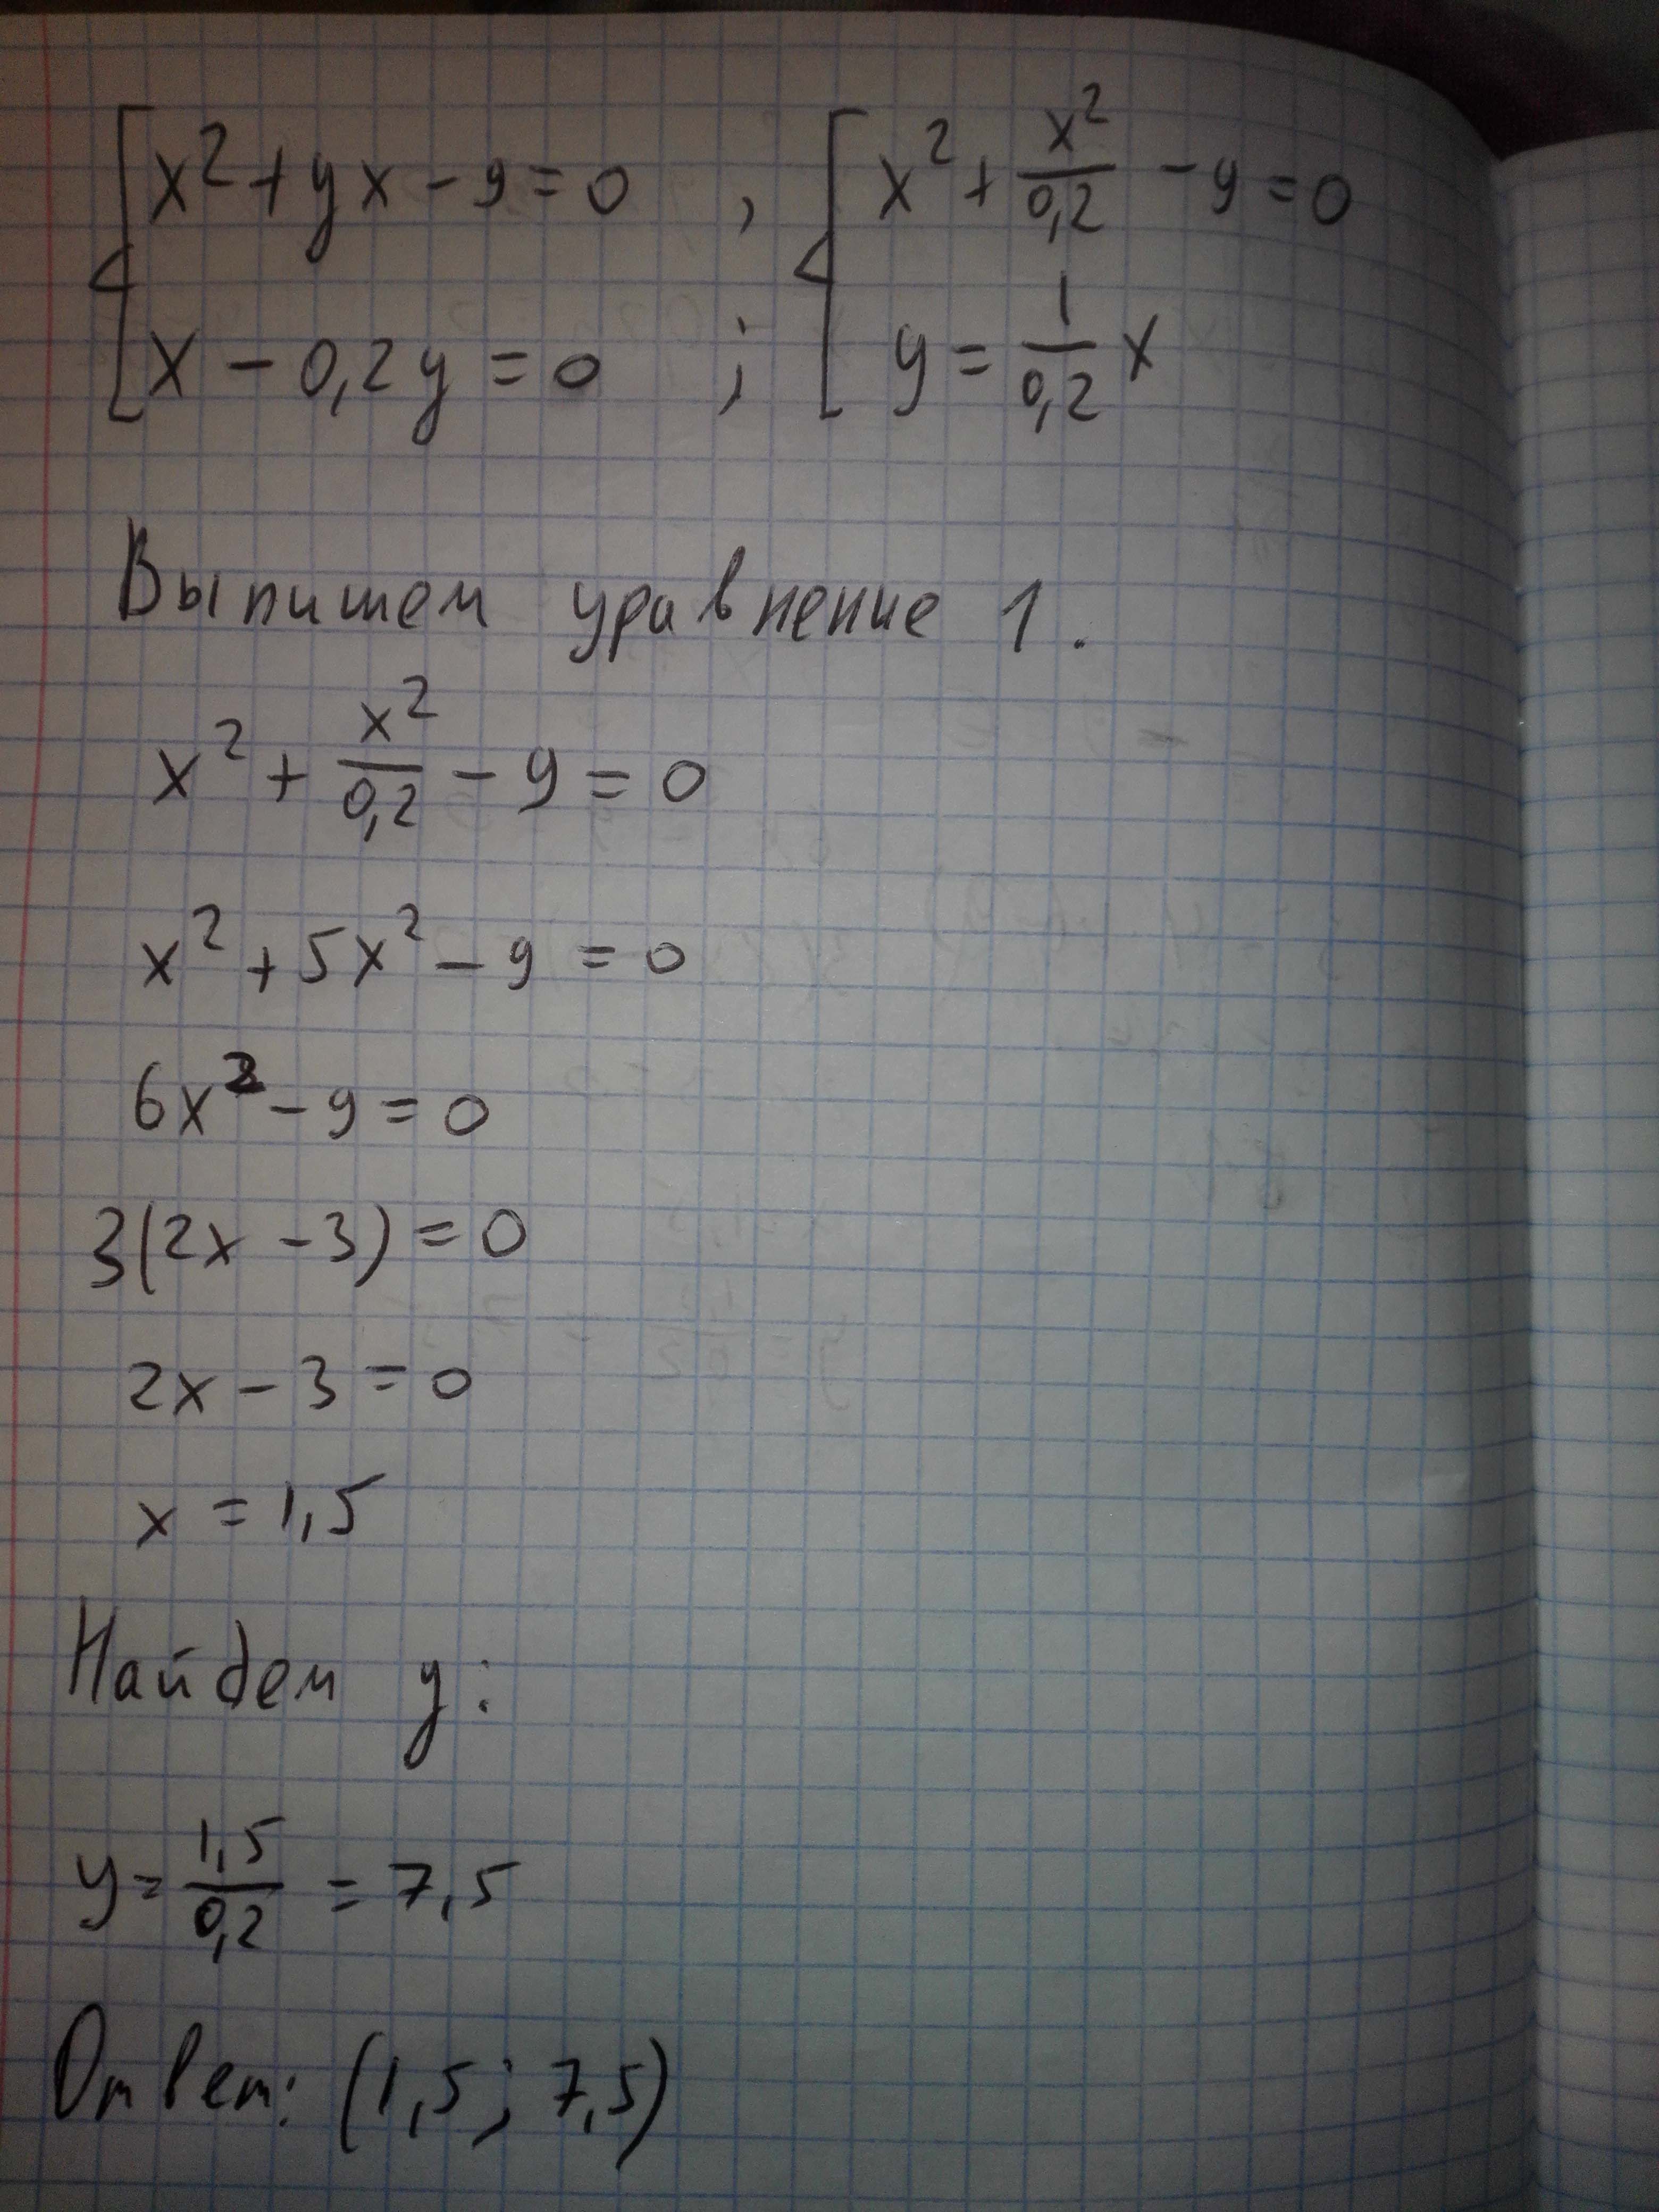 x² + yx − 9 = 0 , x² + x²/0,2 − 9 = 0
x − 0,2y = 0 ; y = 1/0,2 x
Выпишем уравнение 1.
x² + x²/0,2 − 9 = 0
x² + 5x² − 9 = 0
6x² − 9 = 0
3(2x − 3) = 0
2x − 3 = 0
x = 1,5
Найдем y:
y = 1,5/0,2 = 7,5
Ответ: (1,5; 7,5)